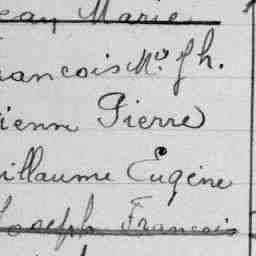 ean Marie
rancois M. Jh.
ienne Pierre
uillaume Eugène
Joseph Francois